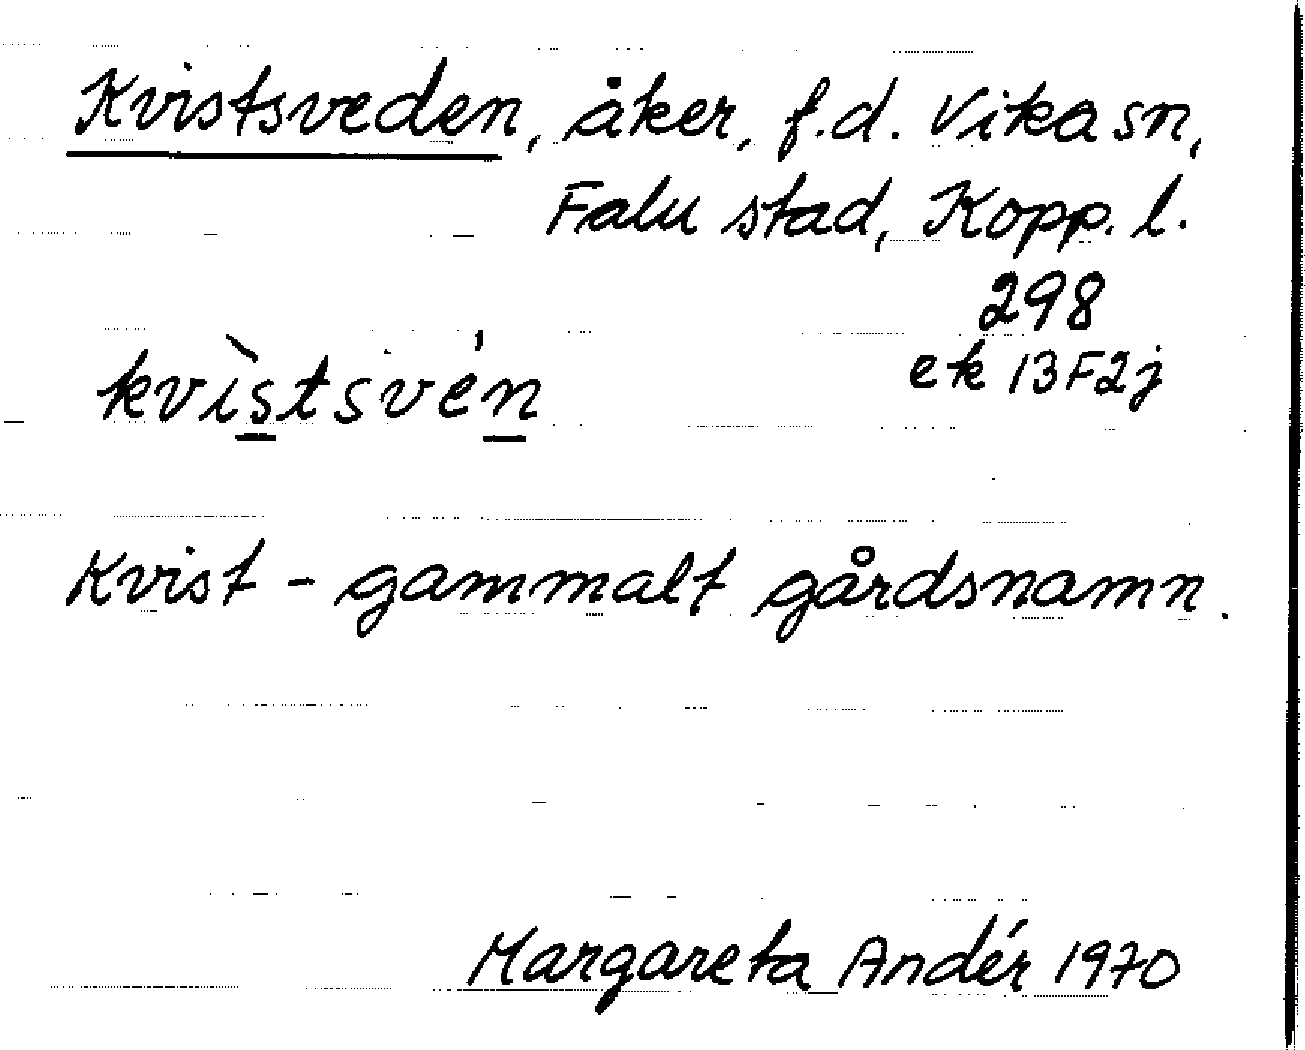 Kvistsveden, åker, f.d. Vika sn,
Falu stad, Kopp. l.
298
ek 13F2j
kvìstsvén
Kvist - gammalt gårdsnamn.
Margareta Andér 1970